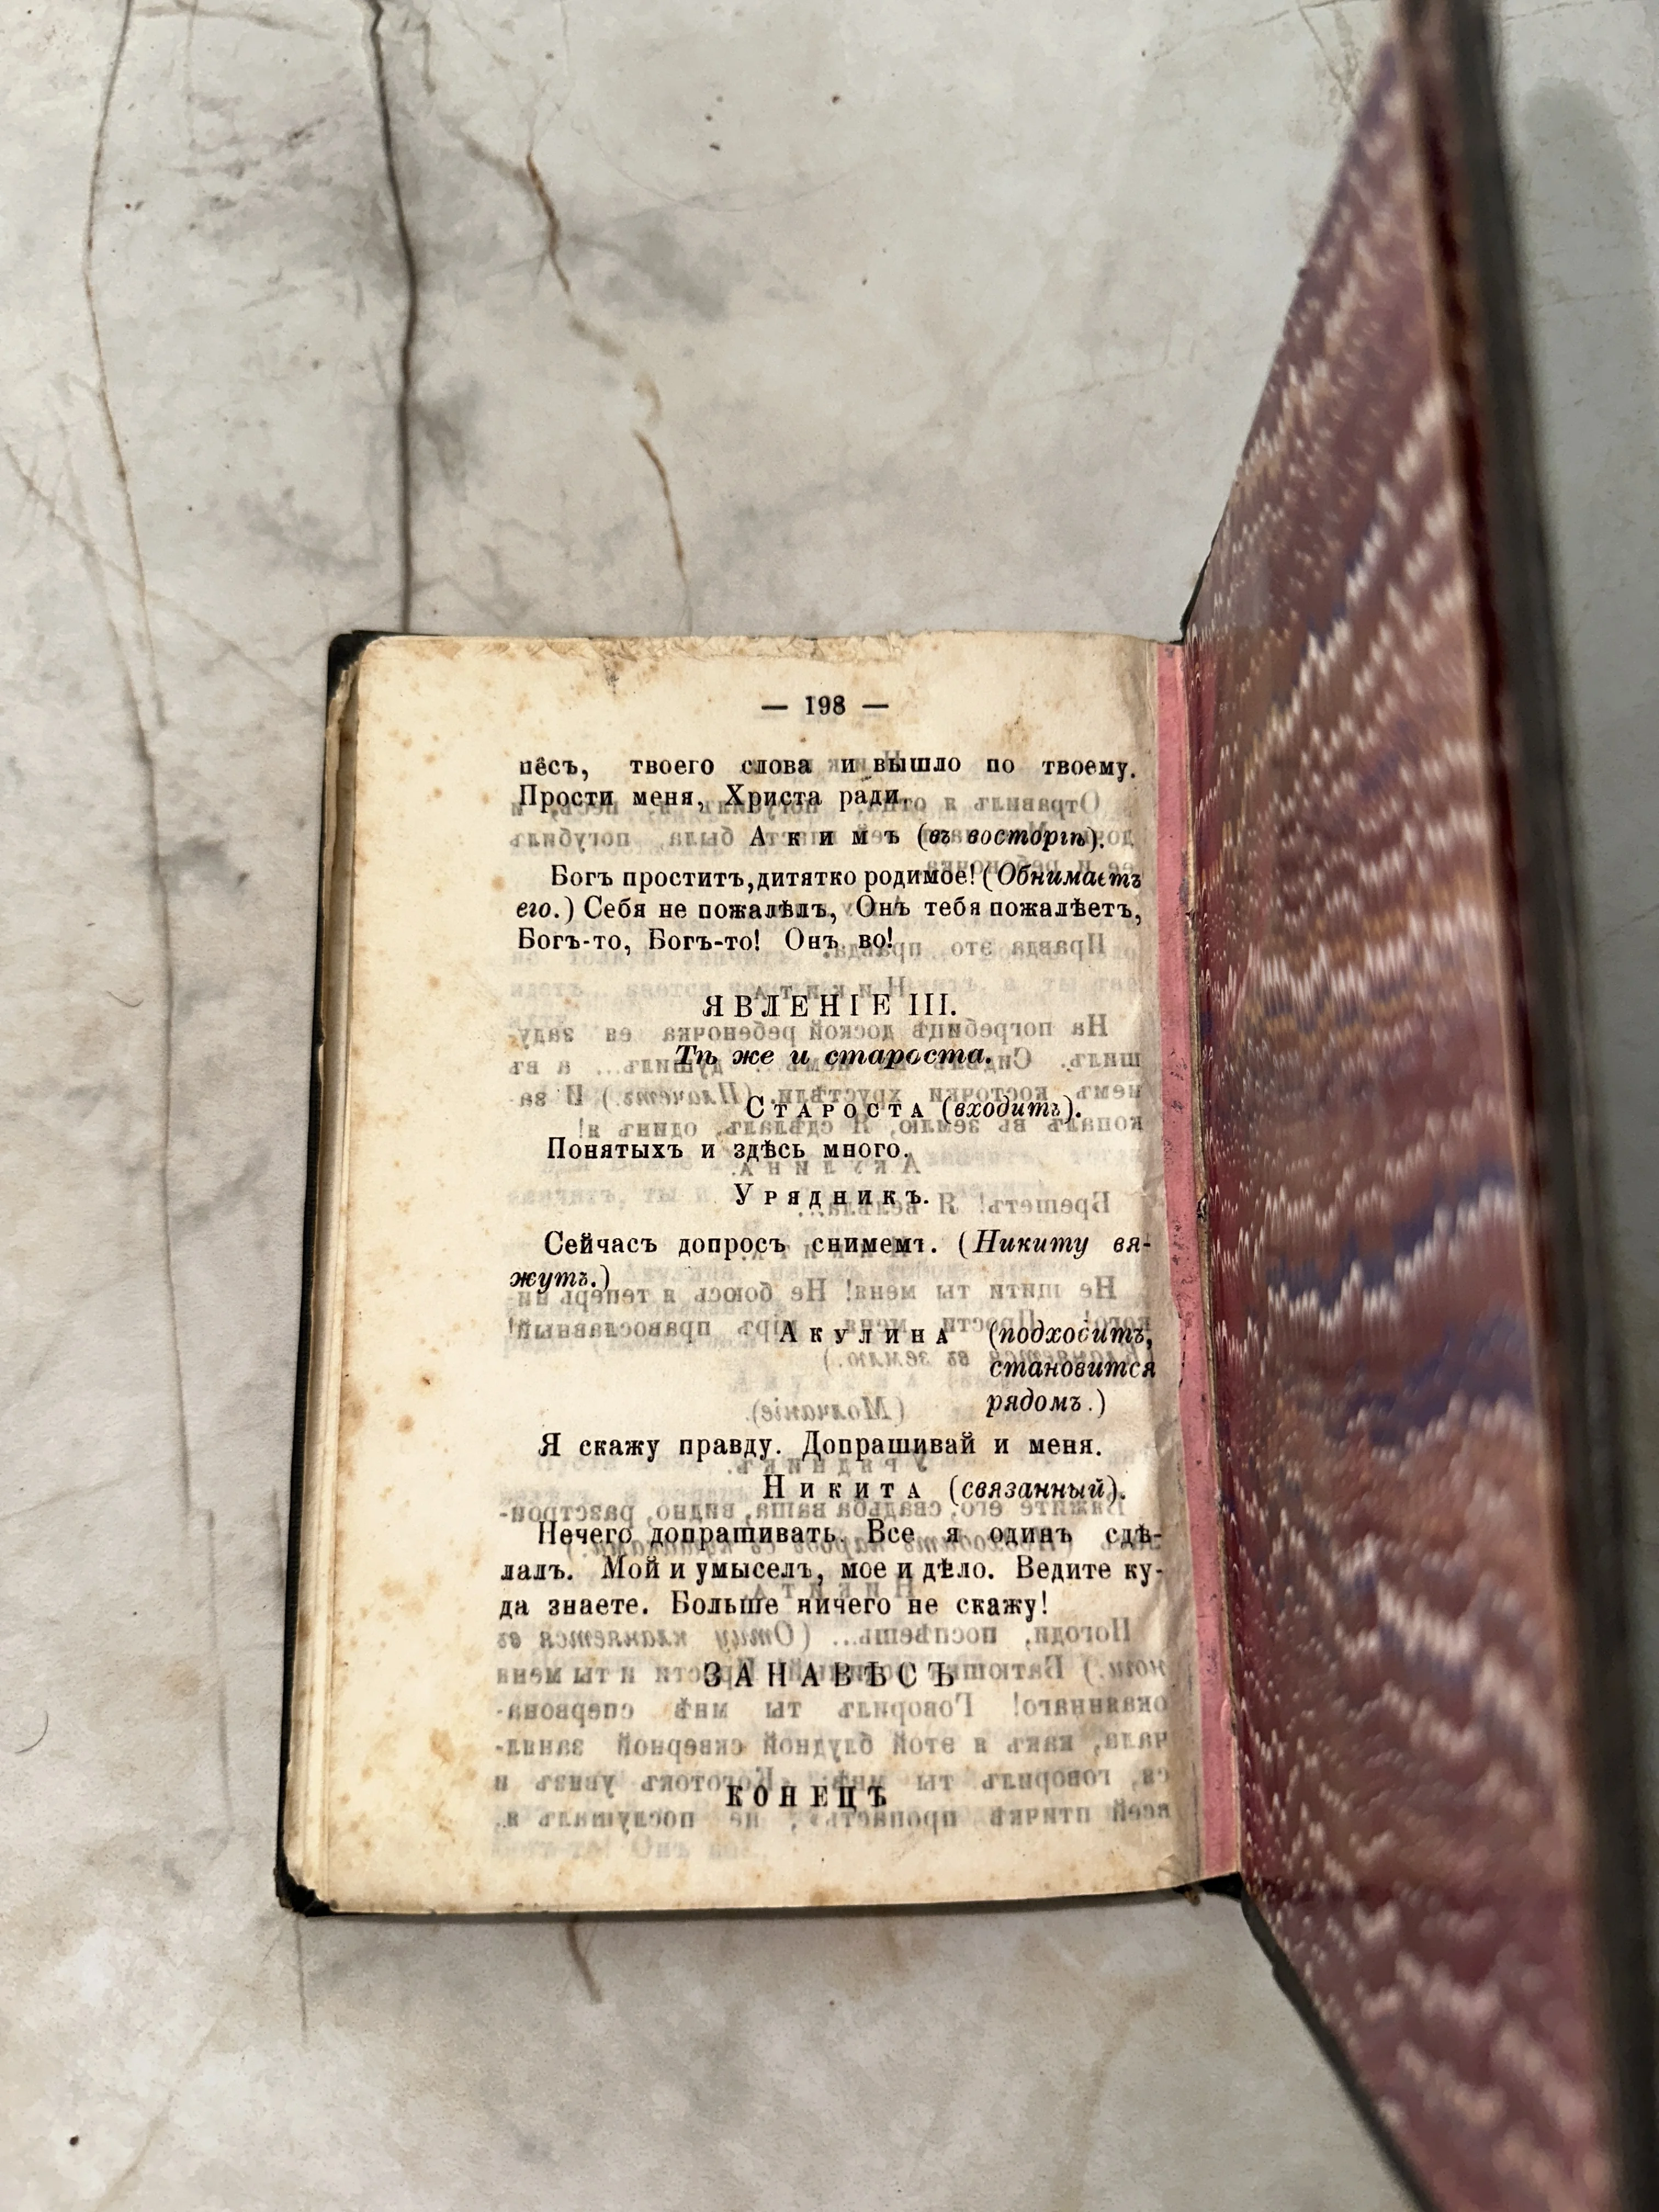 — 198 —
пёсъ, твоего слова и вышло по твоему.
Прости меня, Христа ради.
Акимъ (въ восторгѣ).
Богъ проститъ, дитятко родимое! (Обнимаетъ
его.) Себя не пожалѣлъ, Онъ тебя пожалѣетъ,
Богъ-то, Богъ-то! Онъ во!
ЯВЛЕНІЕ III.
Тѣ же и староста.
Староста (входитъ).
Понятыхъ и здѣсь много.
Урядникъ.
Сейчасъ допросъ снимемъ. (Никиту вя-
жутъ.)
Акулина (подходитъ,
становится
рядомъ.)
Я скажу правду. Допрашивай и меня.
Никита (связанный).
Нечего допрашивать. Все я одинъ сдѣ-
лалъ. Мой и умыселъ, мое и дѣло. Ведите ку-
да знаете. Больше ничего не скажу!
ЗАНАВѢСЪ
КОНЕЦЪ